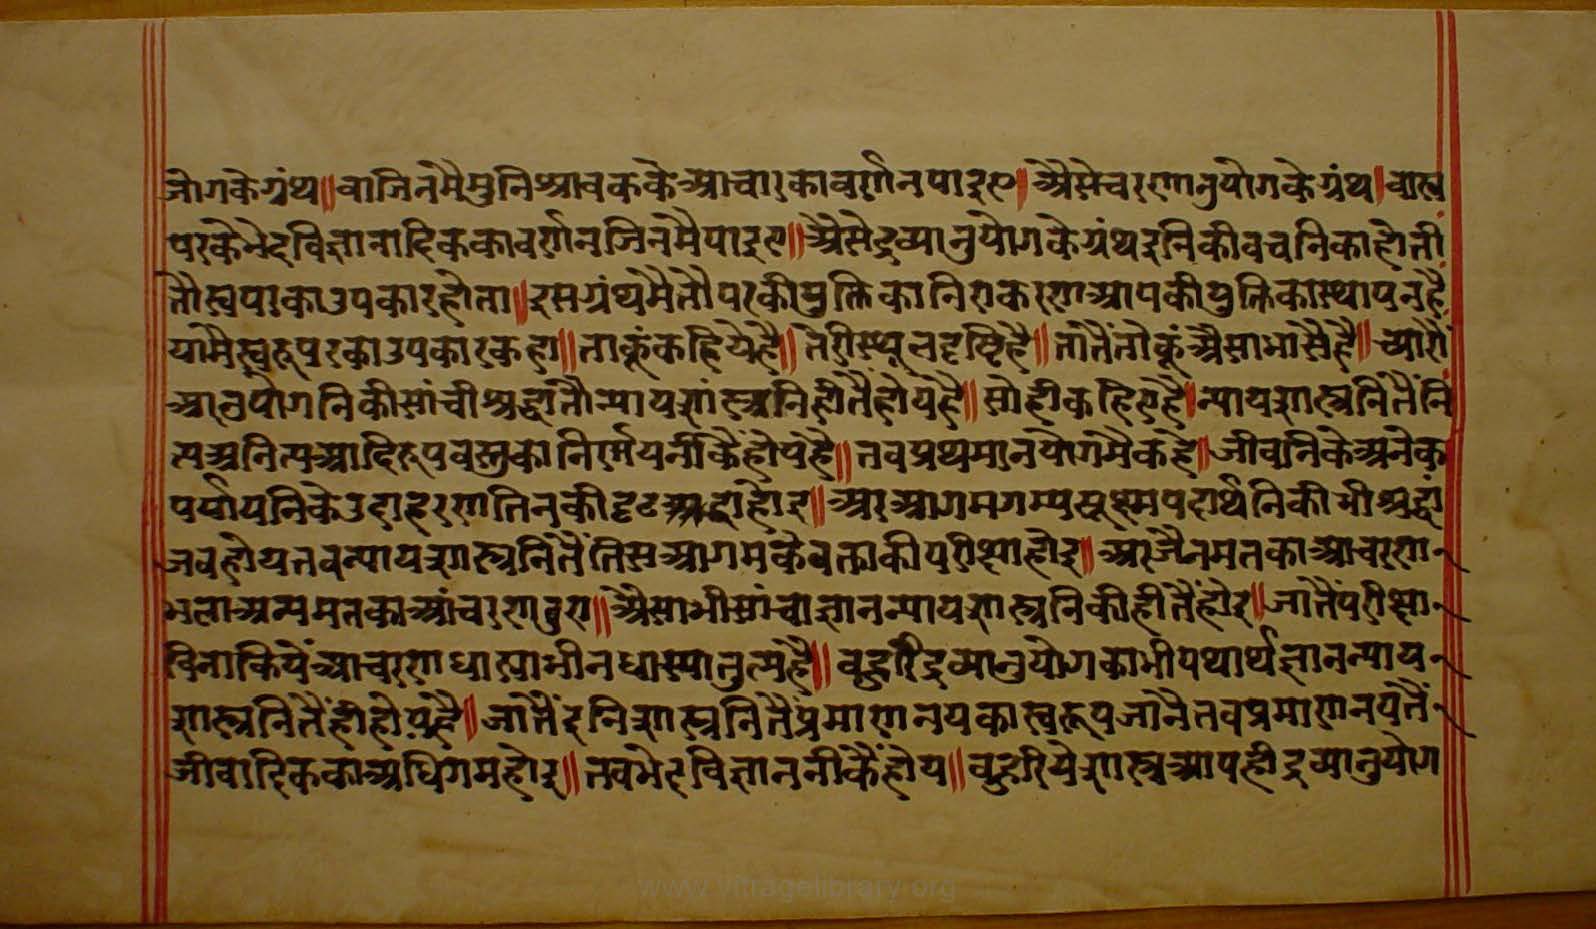 जोगके ग्रंथ॥ वा जिनमै मुनि श्रावकके आचारका वर्णन पाइए। अैसे चरणानुयोगके ग्रंथ। वा स्व
परके भेद विज्ञानादिकका वर्णन जिनमै पाइए॥ अैसे द्रव्यानुयोगके ग्रंथ इनिकी वचनिका होती
तौ स्वपरका उपकार होता॥ इस ग्रंथमै तौ परकी युक्तिका निराकरण आपकी युक्तिका स्थापन है
यामै स्वरूप परका उपकार कहा॥ ताकूं कहिये है॥ तेरी स्थूल दृष्टि है॥ तातैं तोकूं अैसा भासै है॥ च्यारौं
आनुयोगनिकी सांची श्रद्धा तौ न्याय शास्त्रनिहीतैं होय है॥ सो ही कहिए है॥ न्याय शास्त्रनितैं नि
त्य अनित्य आदिरूप वस्तुका निर्णय नीकैं होय है॥ तब प्रथमानयोगमै कहे॥ जीवनिके अनेक
पर्यायनिके उदाहरण तिनकी दृढ श्रद्धा होइ॥ अर आगमगम्य सूक्ष्म पदार्थनिकी भी श्रद्धां
जब होय तब न्याय शास्त्रनितैं तिस आगमके वक्ताकी परीक्षा होइ॥ अर जैनमतका आचरण
भला अन्यमतका आंचरण बुरा॥ अैसा भी सांचा ज्ञान न्याय शास्त्रनिकीहीतैं होइ॥ जातैं परीक्षा
विनाकियें आचरण धारयाभी न धारया तुल्य है॥ बहुरि द्रव्यानुयोगका भी यथार्थ ज्ञान न्याय
शास्त्रनितैंही होय है॥ जातैं इनि शास्त्रनितैं प्रमाण नयका स्वरूप जानै तब प्रमाण नयतैं
जीवादिकका अधिगम होइ॥ तब भेद विज्ञान नीकैं होय॥ बहुरि ये शास्त्र आपही द्रव्यानुयोग
www.vitragelibrary.org